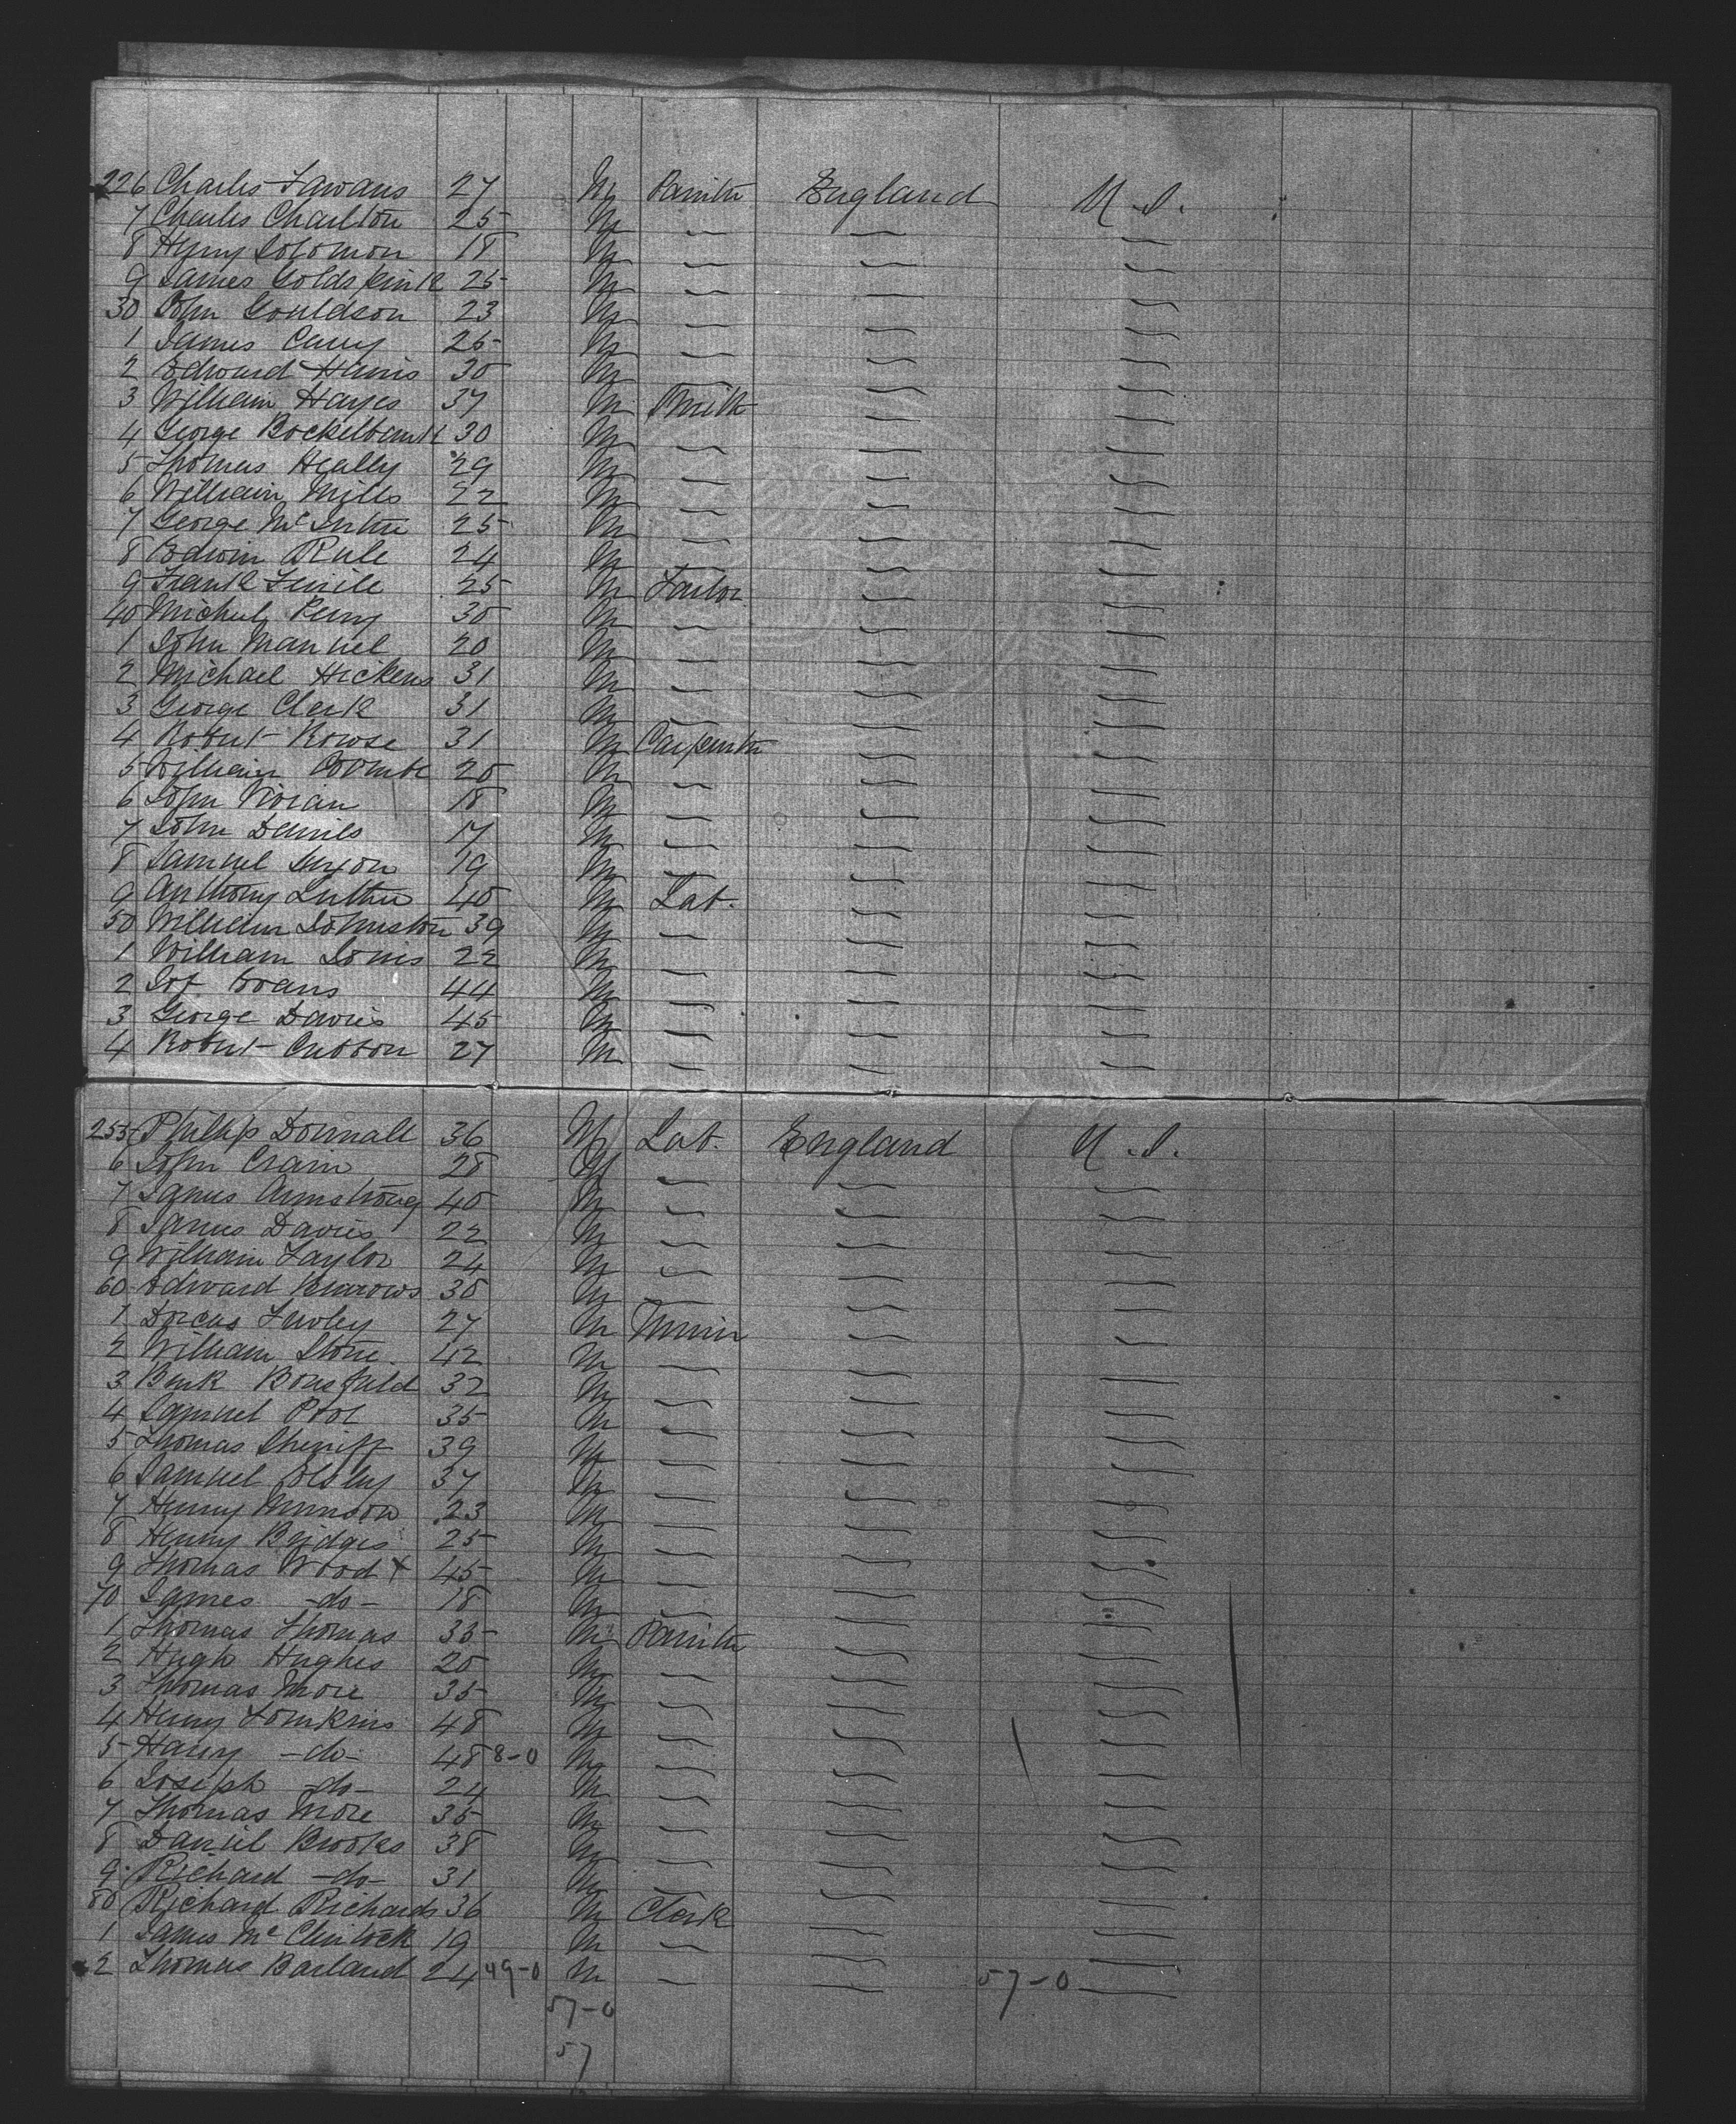 226 Charles Lawans 27 M Painter England U.S.
7 Charles Charlton 25 M
8 Henry Solomon 18 M
9 James Goldspink 25 M
30 John Gouldson 23 M
1 James Carry 25 M
2 Edward Harris 30 M
3 William Hayes 37 M Smith
4 George Bockelbank 30 M
5 Thomas Heally 29 M
6 William Mills 22 M
7 George McIntire 25 M
8 Edwin Rule 24 M
9 Frank 25 M Tailor
40 Michel Perry 30 M
1 John Manuel 20 M
2 Michael Hickens 31 M
3 George Clerk 31 M
4 Robert Rowse 31 M Carpenter
5 William Coombe 20 M
6 John Vivian 18 M
7 John Daniels 17 M
8 Samuel 19 M
9 Anthony Luther 40 M Lab.
50 William Johnston 39 M
1 William Jones 22 M
2 Evans 44 M
3 George Davies 45 M
4 Robert Cubbon 27 M
255 Philip Dornall 36 M Lab. England U.S.
6 John Crain 28 M
7 James Armstrong 40 M
8 James Davies 22 M
9 William Taylor 24 M
60 Edward Burrows 30 M
1 Dorcas 27 M Miner
2 William Stone 42 M
3 Bousfield 32 M
4 Samuel Pool 35 M
5 Thomas Sherriff 39 M
6 Samuel 37 M
7 Henry Munson 23 M
8 Henry Bridges 25 M
9 Thomas Wood x 45 M
70 James -do- 18 M
1 Thomas Thomas 35 M Painter
2 Hugh Hughes 20 M
3 Thomas More 35 M
4 Henry Tomkins 48 M
5 Harry -do- 48 8-0 M
6 Joseph -do- 24 M
7 Thomas More 35 M
8 Daniel Brooks 38 M
9 Richard -do- 31 M
80 Richard Richards 36 M Clerk
1 James McClintock 19 M
2 Thomas Barland 24 49-0 M 57-0
57-0
57